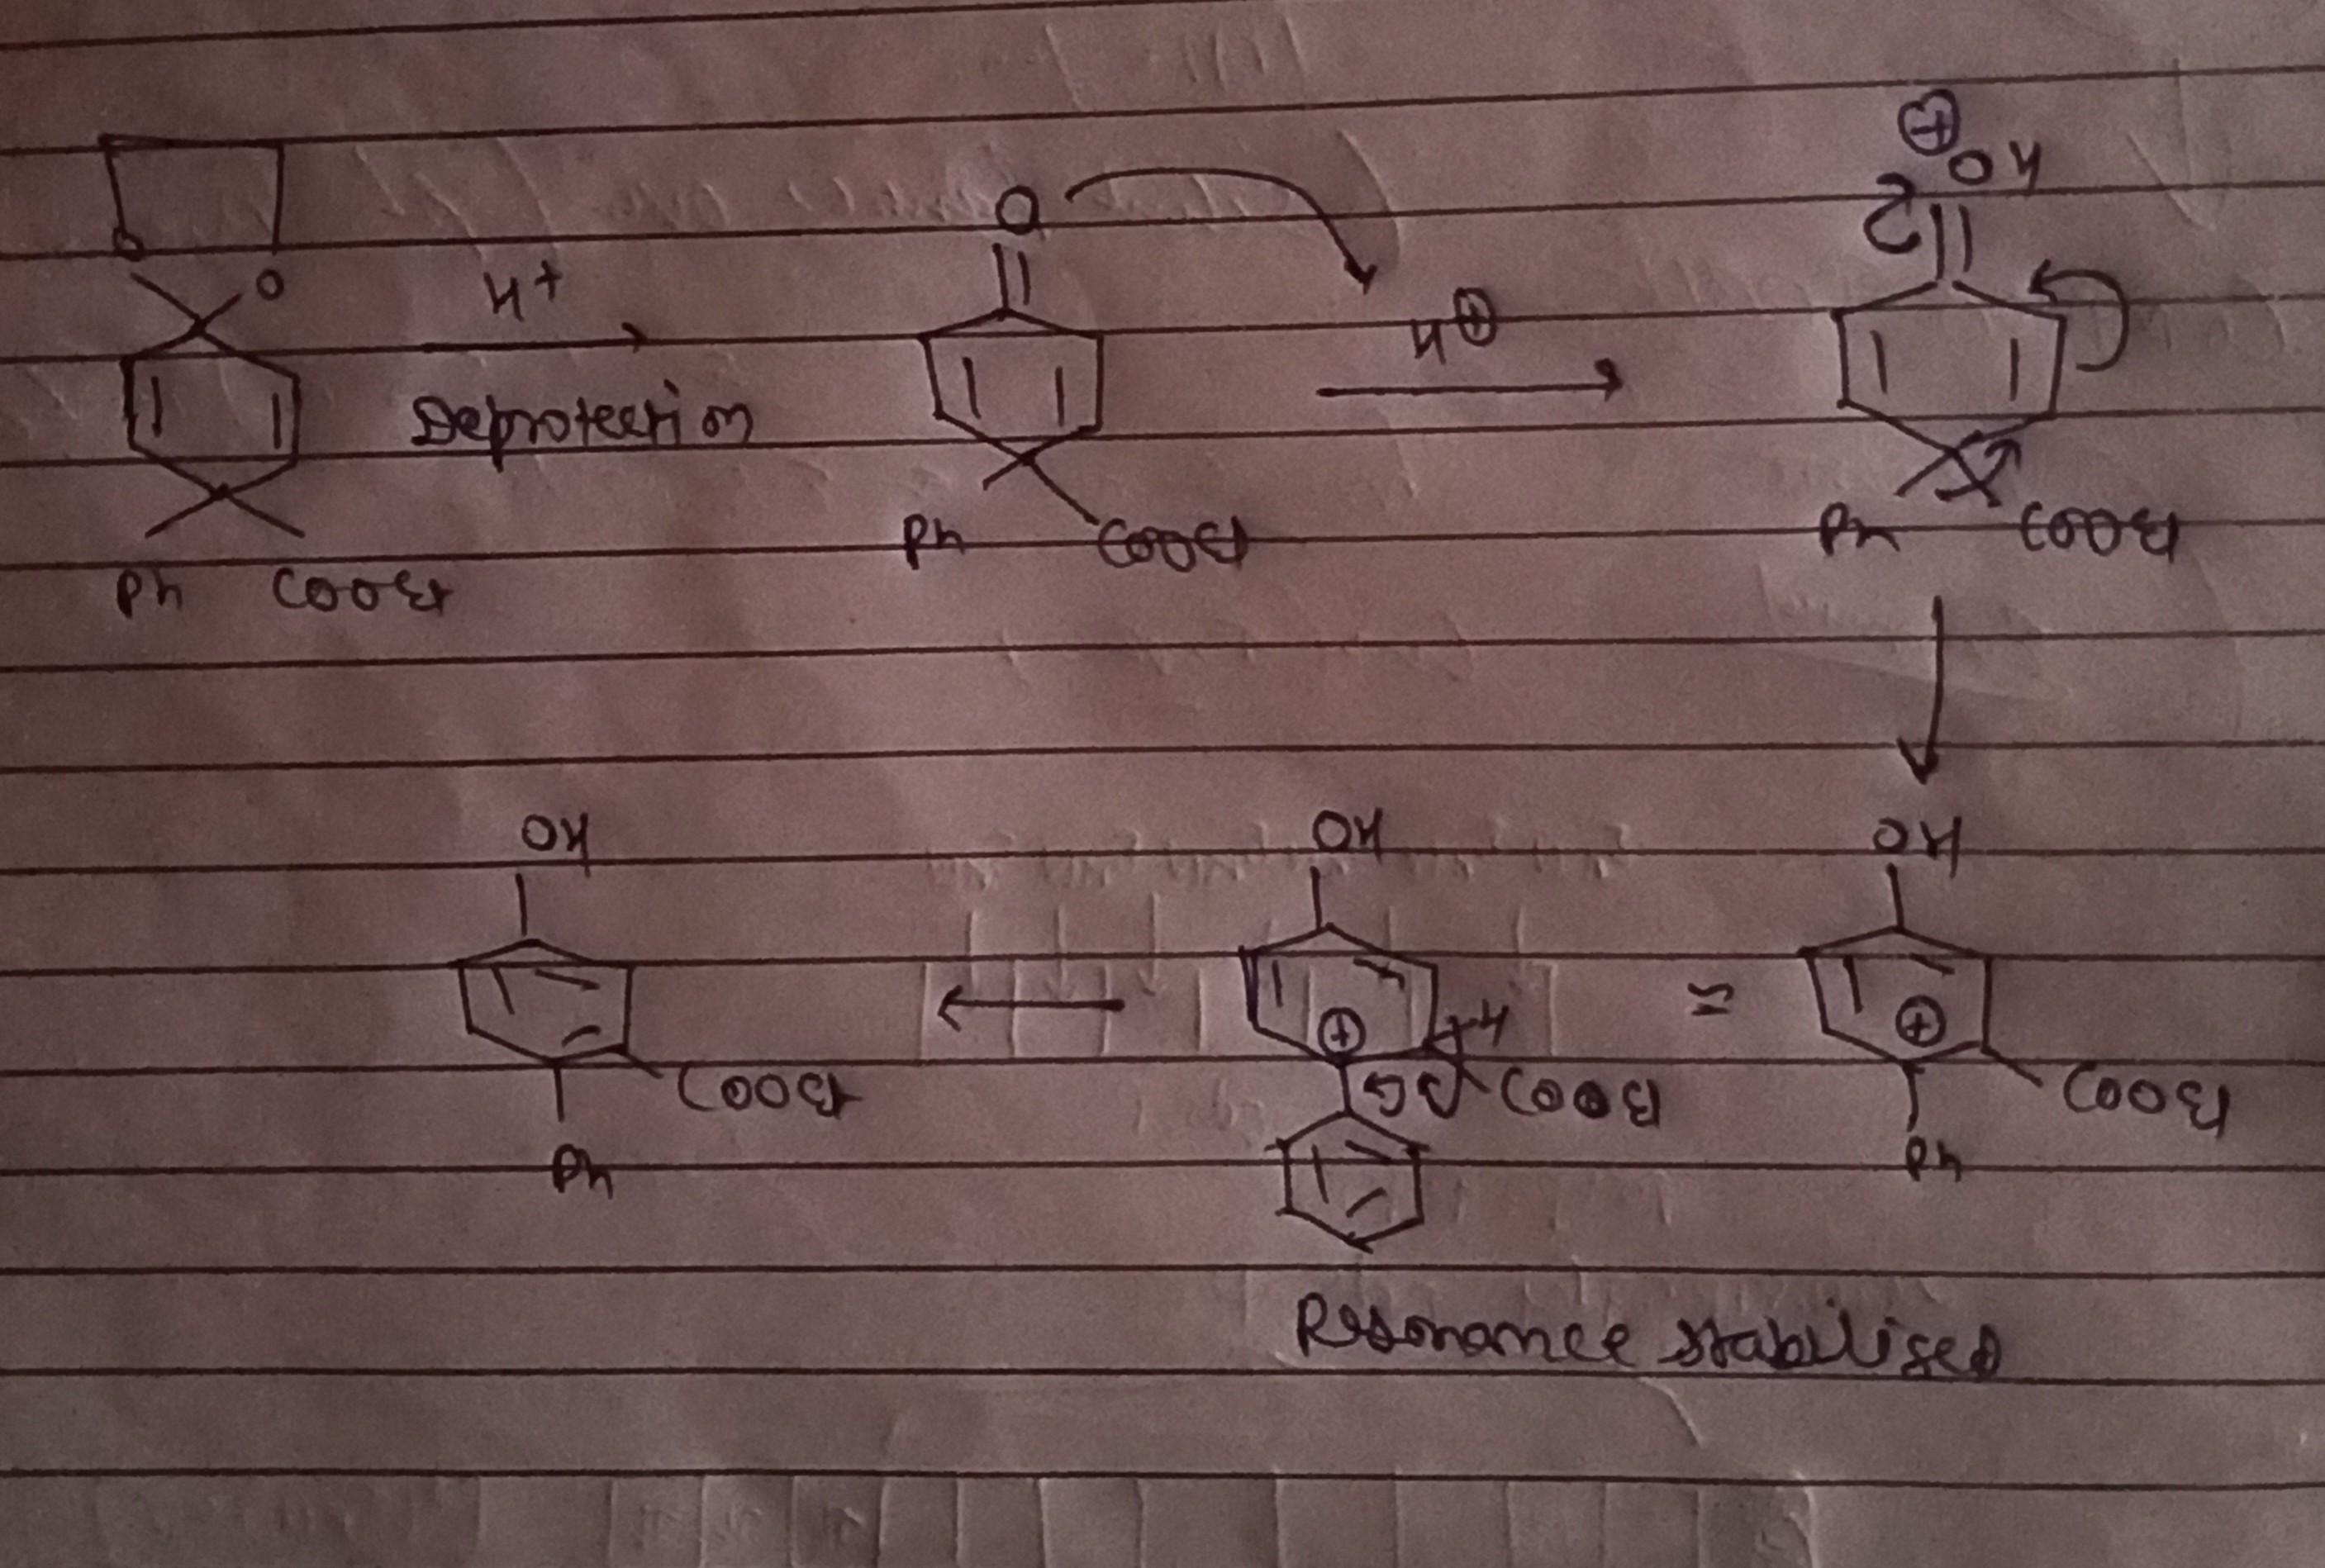 ⊕
OH
O
O
O
H+
H⊕
Deprotection
Ph COOEt
Ph COOEt
Ph COOEt
OH OH OH
⊕ H ≈ ⊕
COOEt COOEt COOEt
Ph Ph
Resonance stabilised